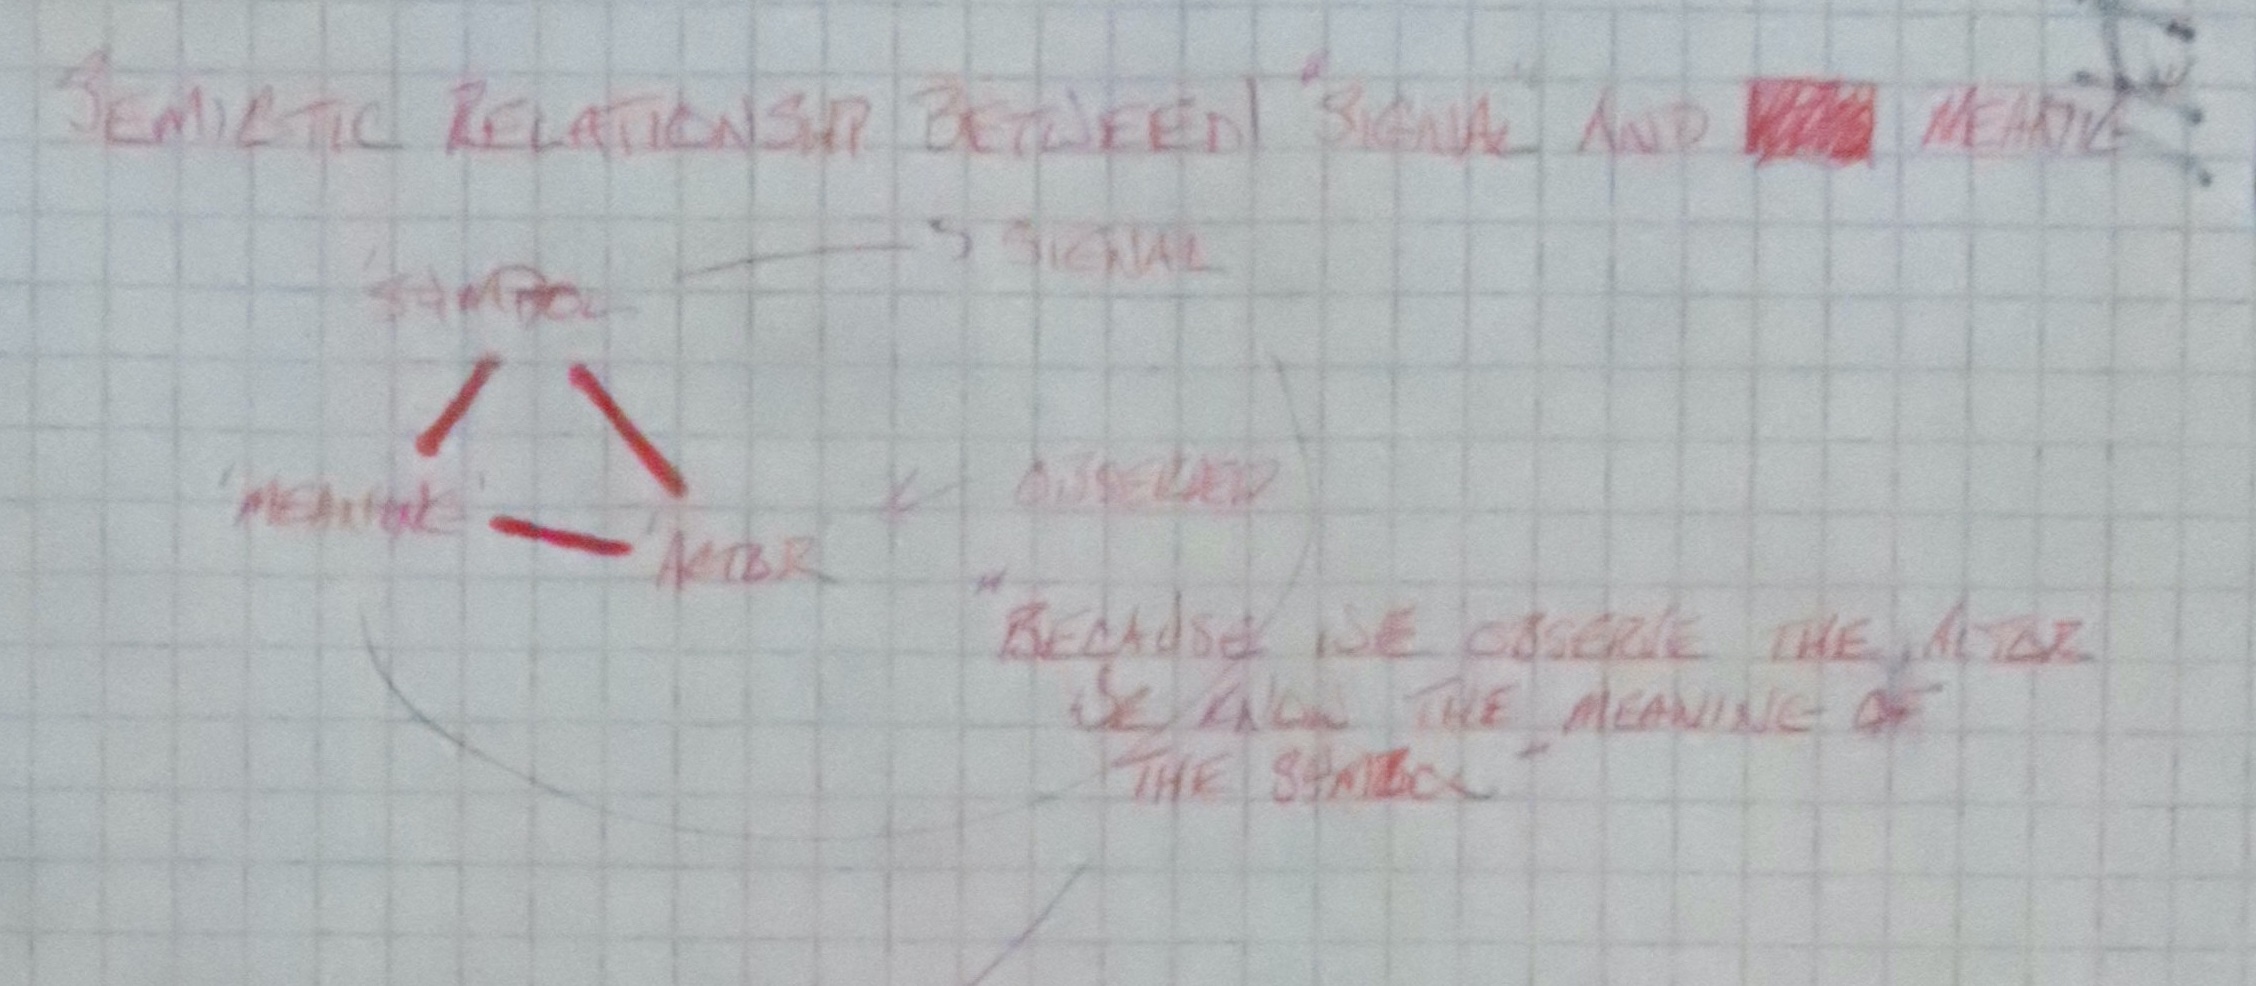 SEMIOTIC RELATIONSHIP BETWEEN "SIGNAL" AND MEANING
'SYMBOL
SIGNAL
'MEANING'
OBSERVED
'ACTOR
"BECAUSE WE OBSERVE THE ACTOR
WE KNOW THE MEANING OF
THE SYMBOL"